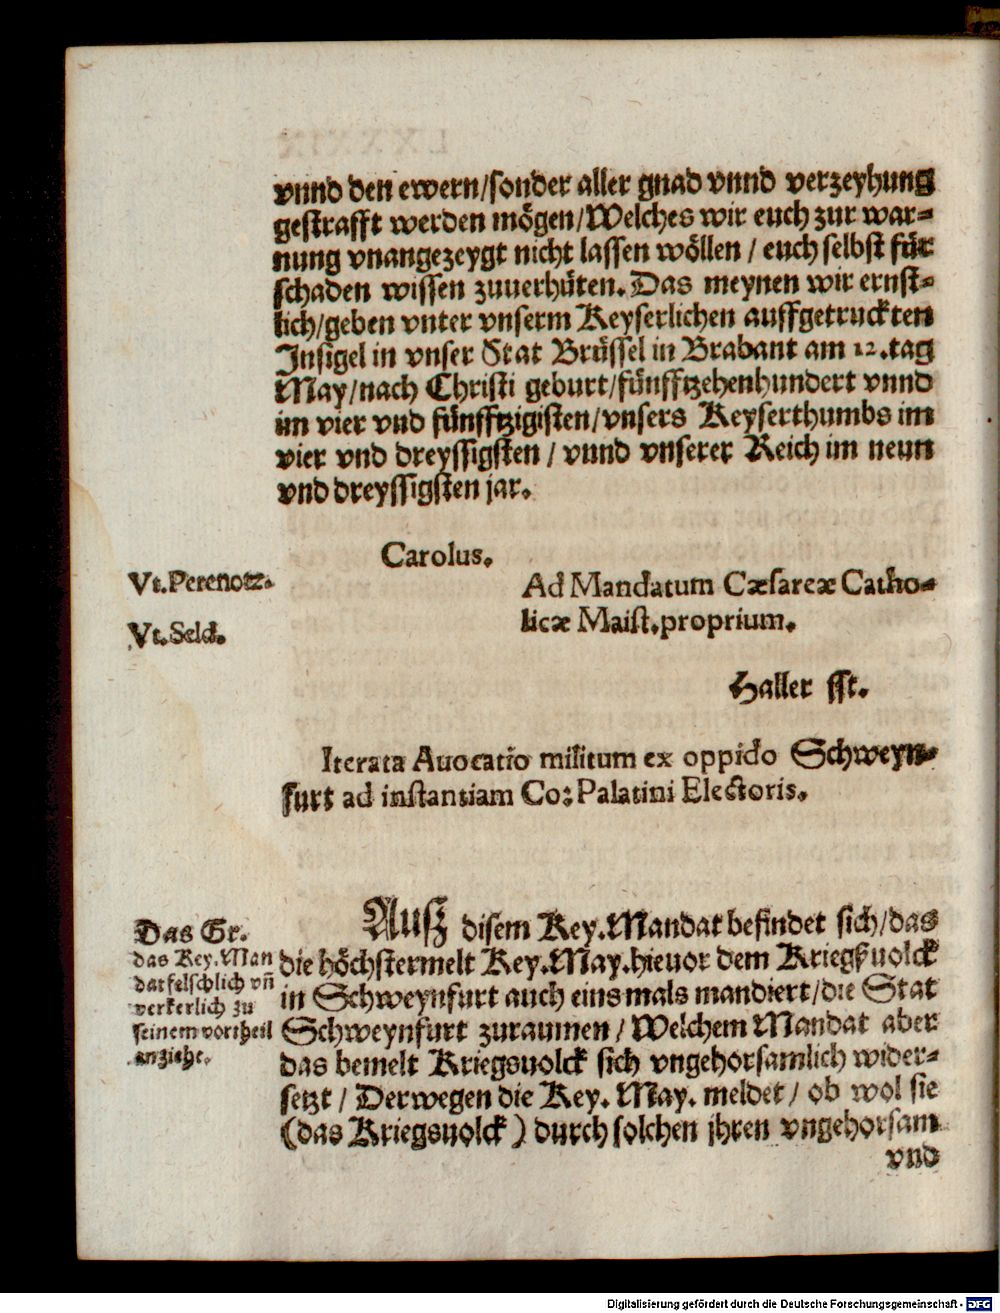 vnnd den ewern/sonder aller gnad vnnd verzeyhung
gestrafft werden mögen/Welches wir euch zur war-
nung vnangezeygt nicht lassen wöllen / euch selbst für
schaden wissen zuuerhüten. Das meynen wir ernst-
lich/geben vnter vnserm Keyserlichen auffgetruckten
Insigel in vnser Stat Brüssel in Brabant am 12.tag
May/nach Christi geburt/fünfftzehenhundert vnnd
im vier vnd fünfftzigisten/vnsers Keyserthumbs im
vier vnd dreyssigsten / vnnd vnserer Reich im neun
vnd dreyssigsten jar.
Carolus.
Vt.Perenotz.
Ad Mandatum Cæsareæ Catho-
licæ Maist.proprium.
Vt.Seld.
Haller sst.
Iterata Auocatio militum ex oppido Schweyn-
furt ad instantiam Co: Palatini Electoris.
Ausz disem Key.Mandat befindet sich/das
die höchstermelt Key.May.hieuor dem Kriegßuolck
in Schweynfurt auch einsmals mandiert/die Stat
Schweynfurt zuraumen / Welchem Mandat aber
das bemelt Kriegsuolck sich vngehorsamlich wider-
setzt / Derwegen die Key. May. meldet / ob wol sie
(das Kriegsuolck) durch solchen jhren vngehorsam
vnd
Das Gr.
das Key.Man
dat felschlich vñ
verkerlich zu
seinem vortheil
anziehe.
Digitalisierung gefördert durch die Deutsche Forschungsgemeinschaft - DFG